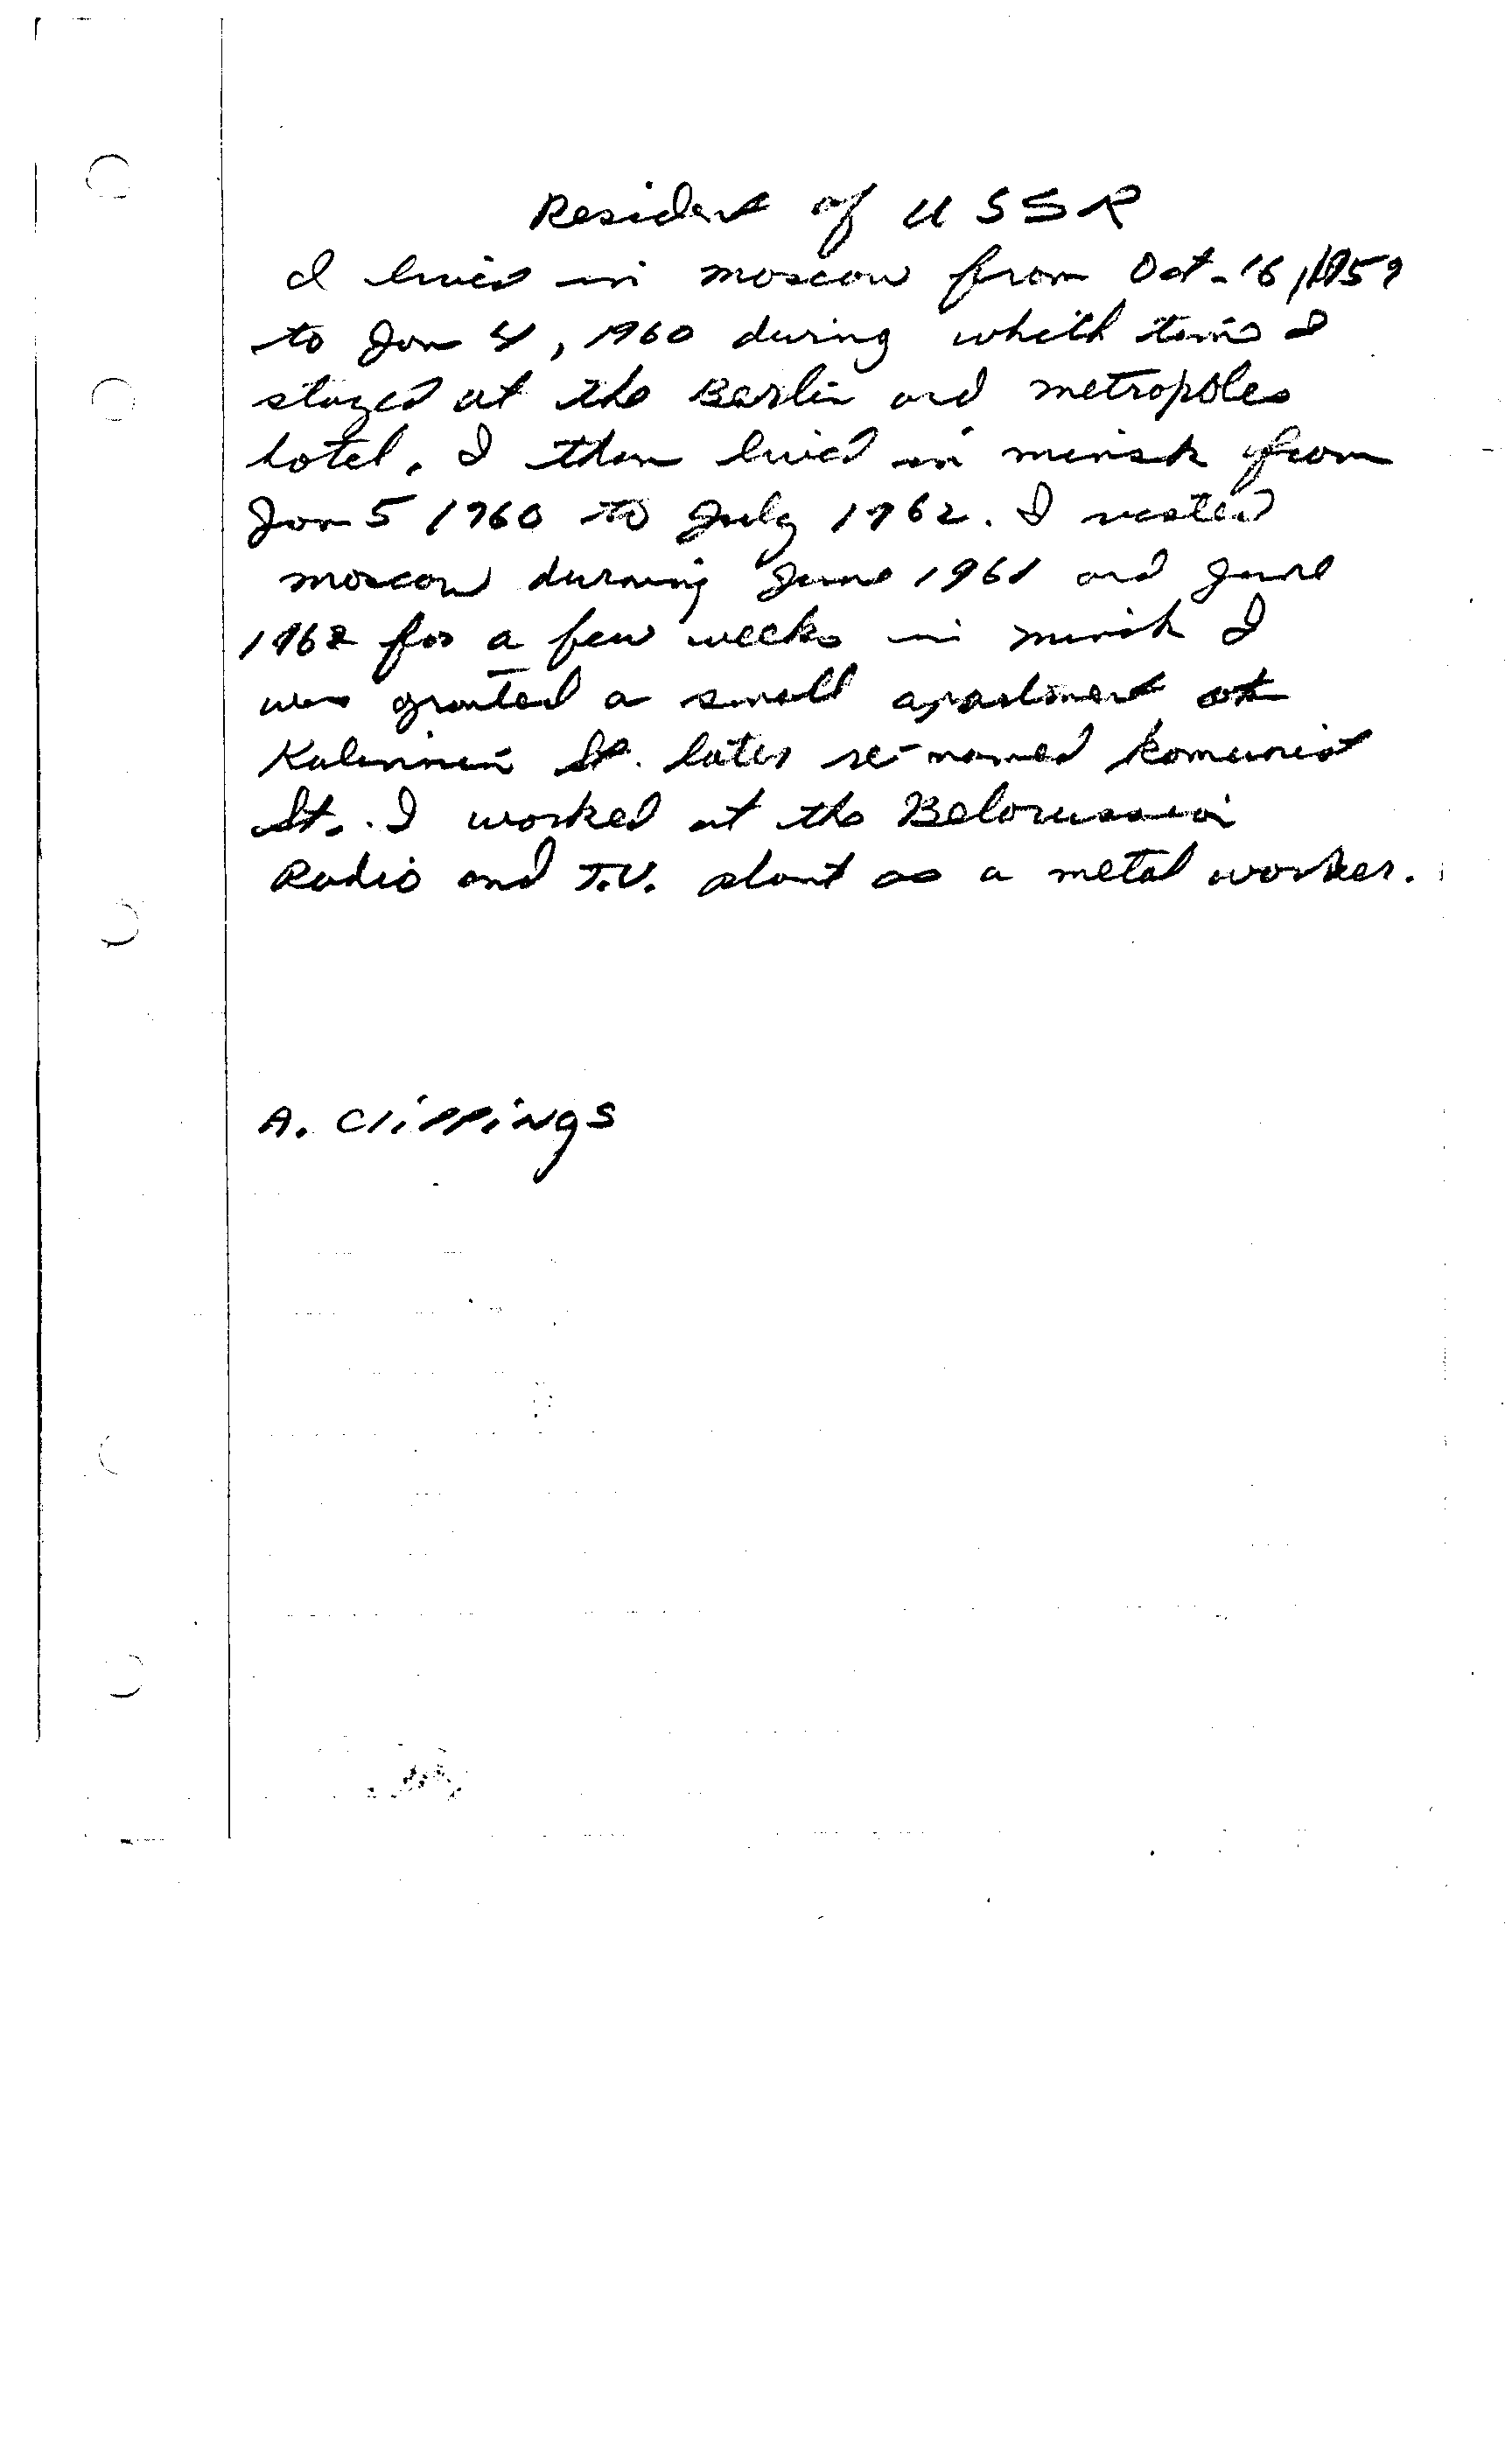 Resident of USSR
I lived in moscow from Oct-16,1959
to Jan 4, 1960 during whitch time I
stayed at the Berlin and metropoles
hotel. I then lived in minsk from
Jan 5 1960 to July 1962. I visted
moscow durning June 1961 and June
1962 for a few weeks in minsk I
was granted a small apartment at
Kalinnin St. later re-named Komunist
St.. I worked at the Belorussian
Radio and T.V. plant as a metal worker.
A. Clippings